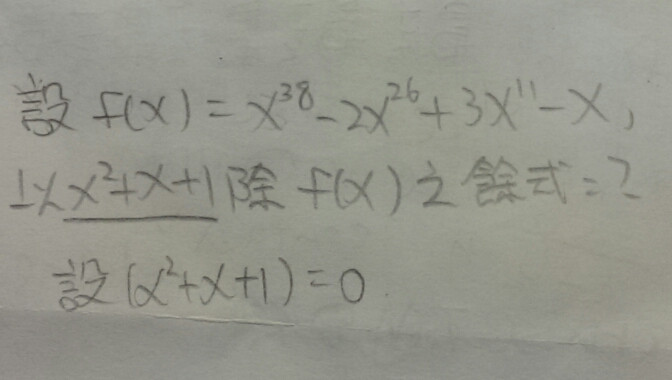 設 f(x) = x³⁸ - 2x²⁶ + 3x¹¹ - x,
以 x²+x+1 除 f(x) 之餘式=?
設 (x²+x+1) = 0